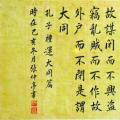 故謀閉而不興盜
竊亂賊而不作故
外戶而不閉是謂
大同
孔子禮運大同篇
時在己亥年月張仲亭書